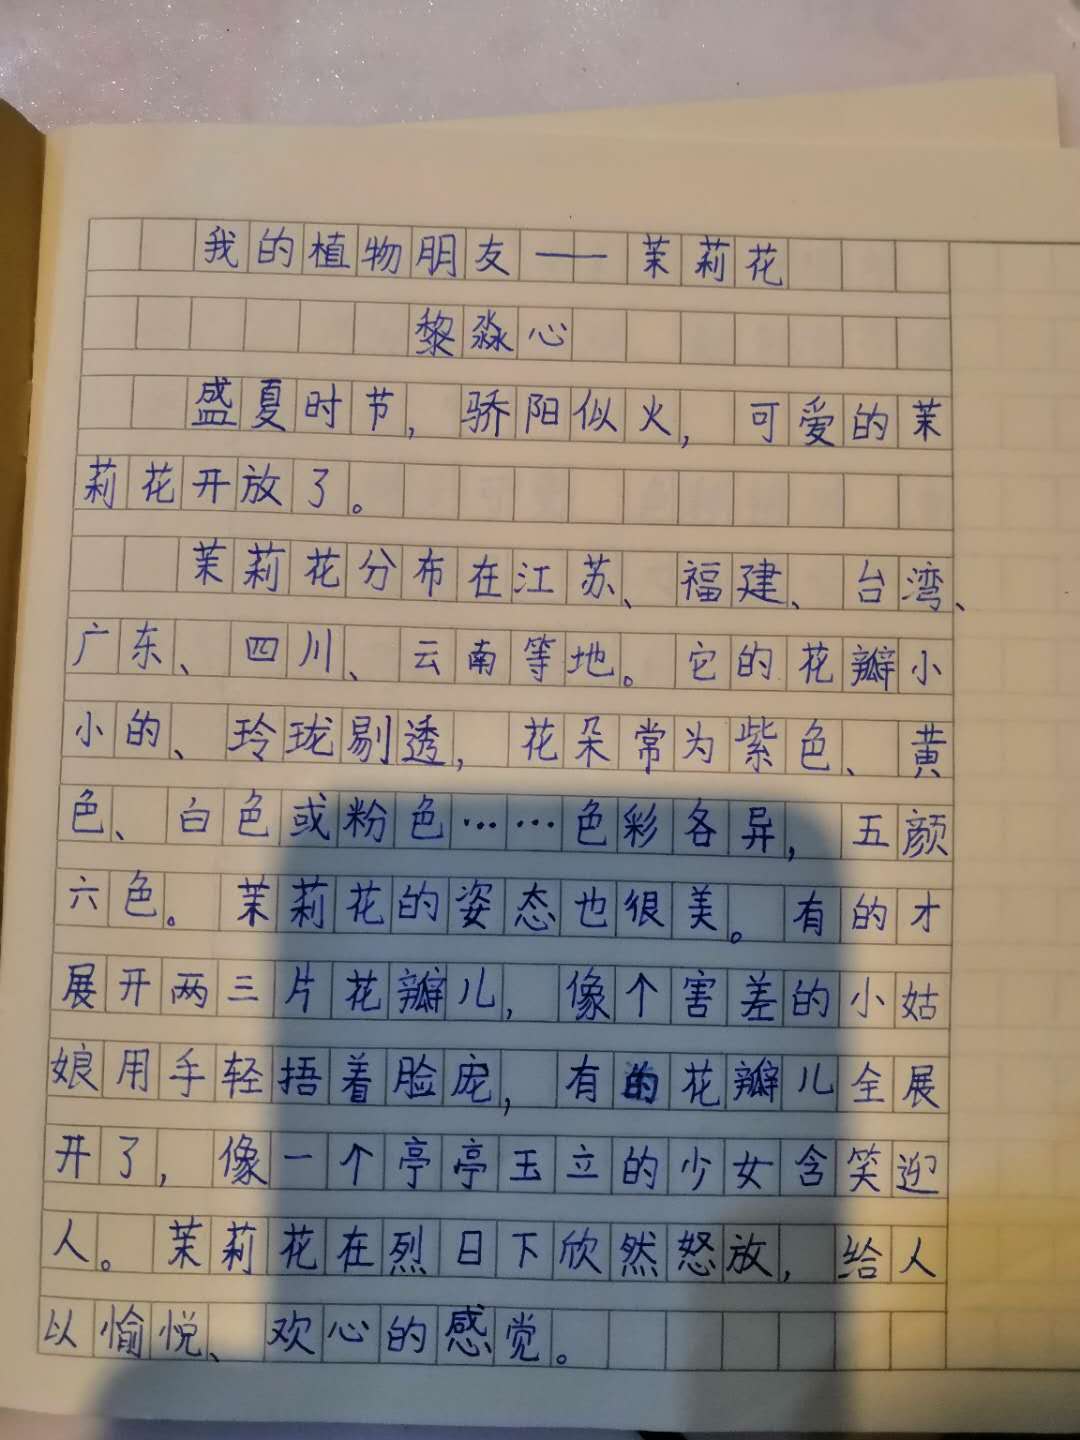 我的植物朋友——茉莉花
黎淼心
盛夏时节,骄阳似火,可爱的茉
莉花开放了。
茉莉花分布在江苏、福建、台湾、
广东、四川、云南等地。它的花瓣小
小的、玲珑剔透,花朵常为紫色、黄
色、白色或粉色……色彩各异,五颜
六色。茉莉花的姿态也很美。有的才
展开两三片花瓣儿,像个害羞的小姑
娘用手轻捂着脸庞,有的花瓣儿全展
开了,像一个亭亭玉立的少女含笑迎
人。茉莉花在烈日下欣然怒放,给人
以愉悦、欢心的感觉。